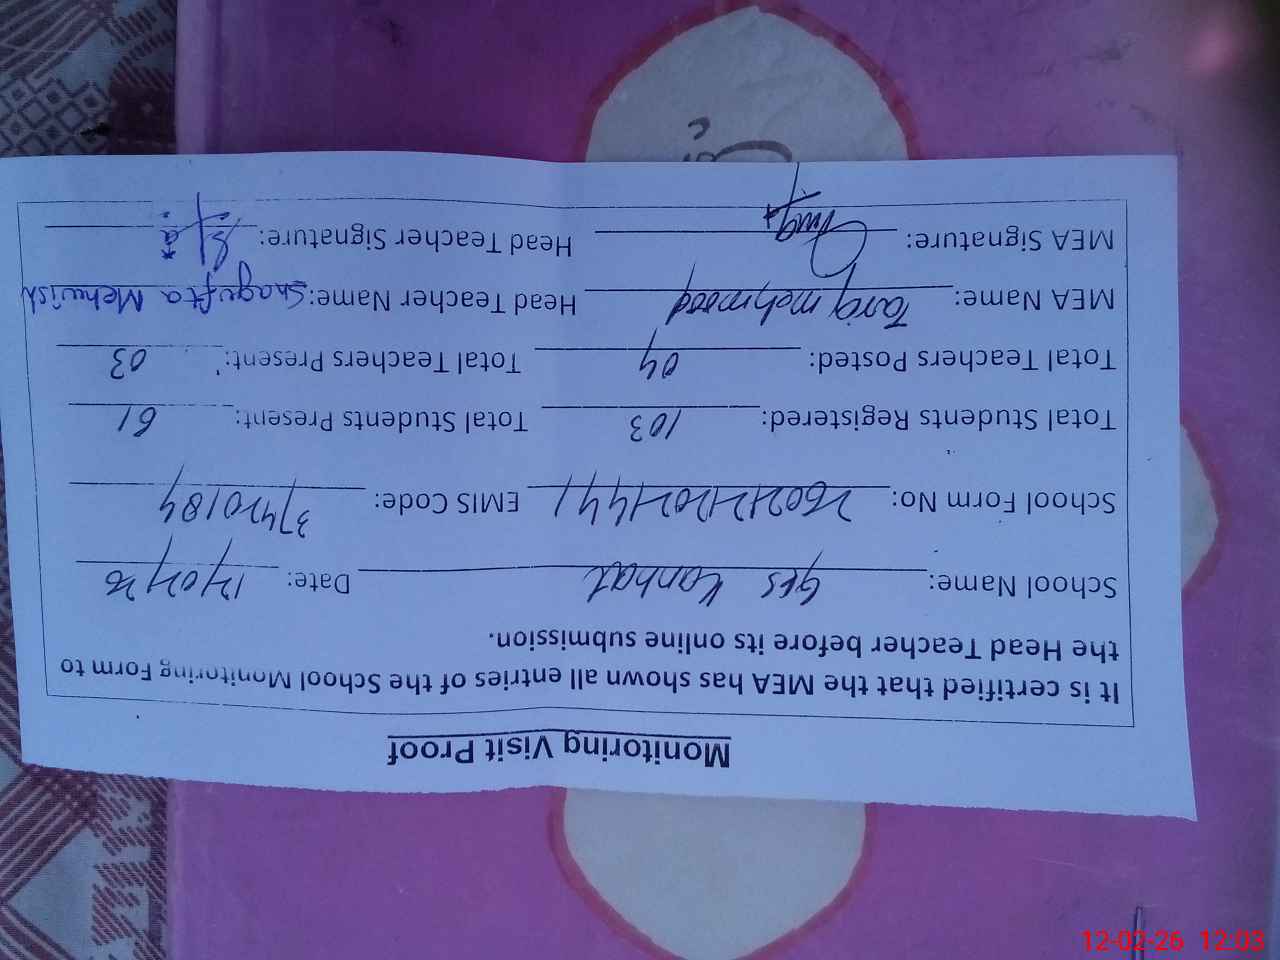 Monitoring Visit Proof
It is certified that the MEA has shown all entries of the School Monitoring Form to
the Head Teacher before its online submission.
School Name: GPS Kanhat Date: 12/02/26
School Form No: EMIS Code: 37420184
Total Students Registered: 103 Total Students Present: 61
Total Teachers Posted: 04 Total Teachers Present: 03
MEA Name: Tariq mehmood Head Teacher Name: Shagufta Mehwish
MEA Signature: Head Teacher Signature:
12-02-26 12:03